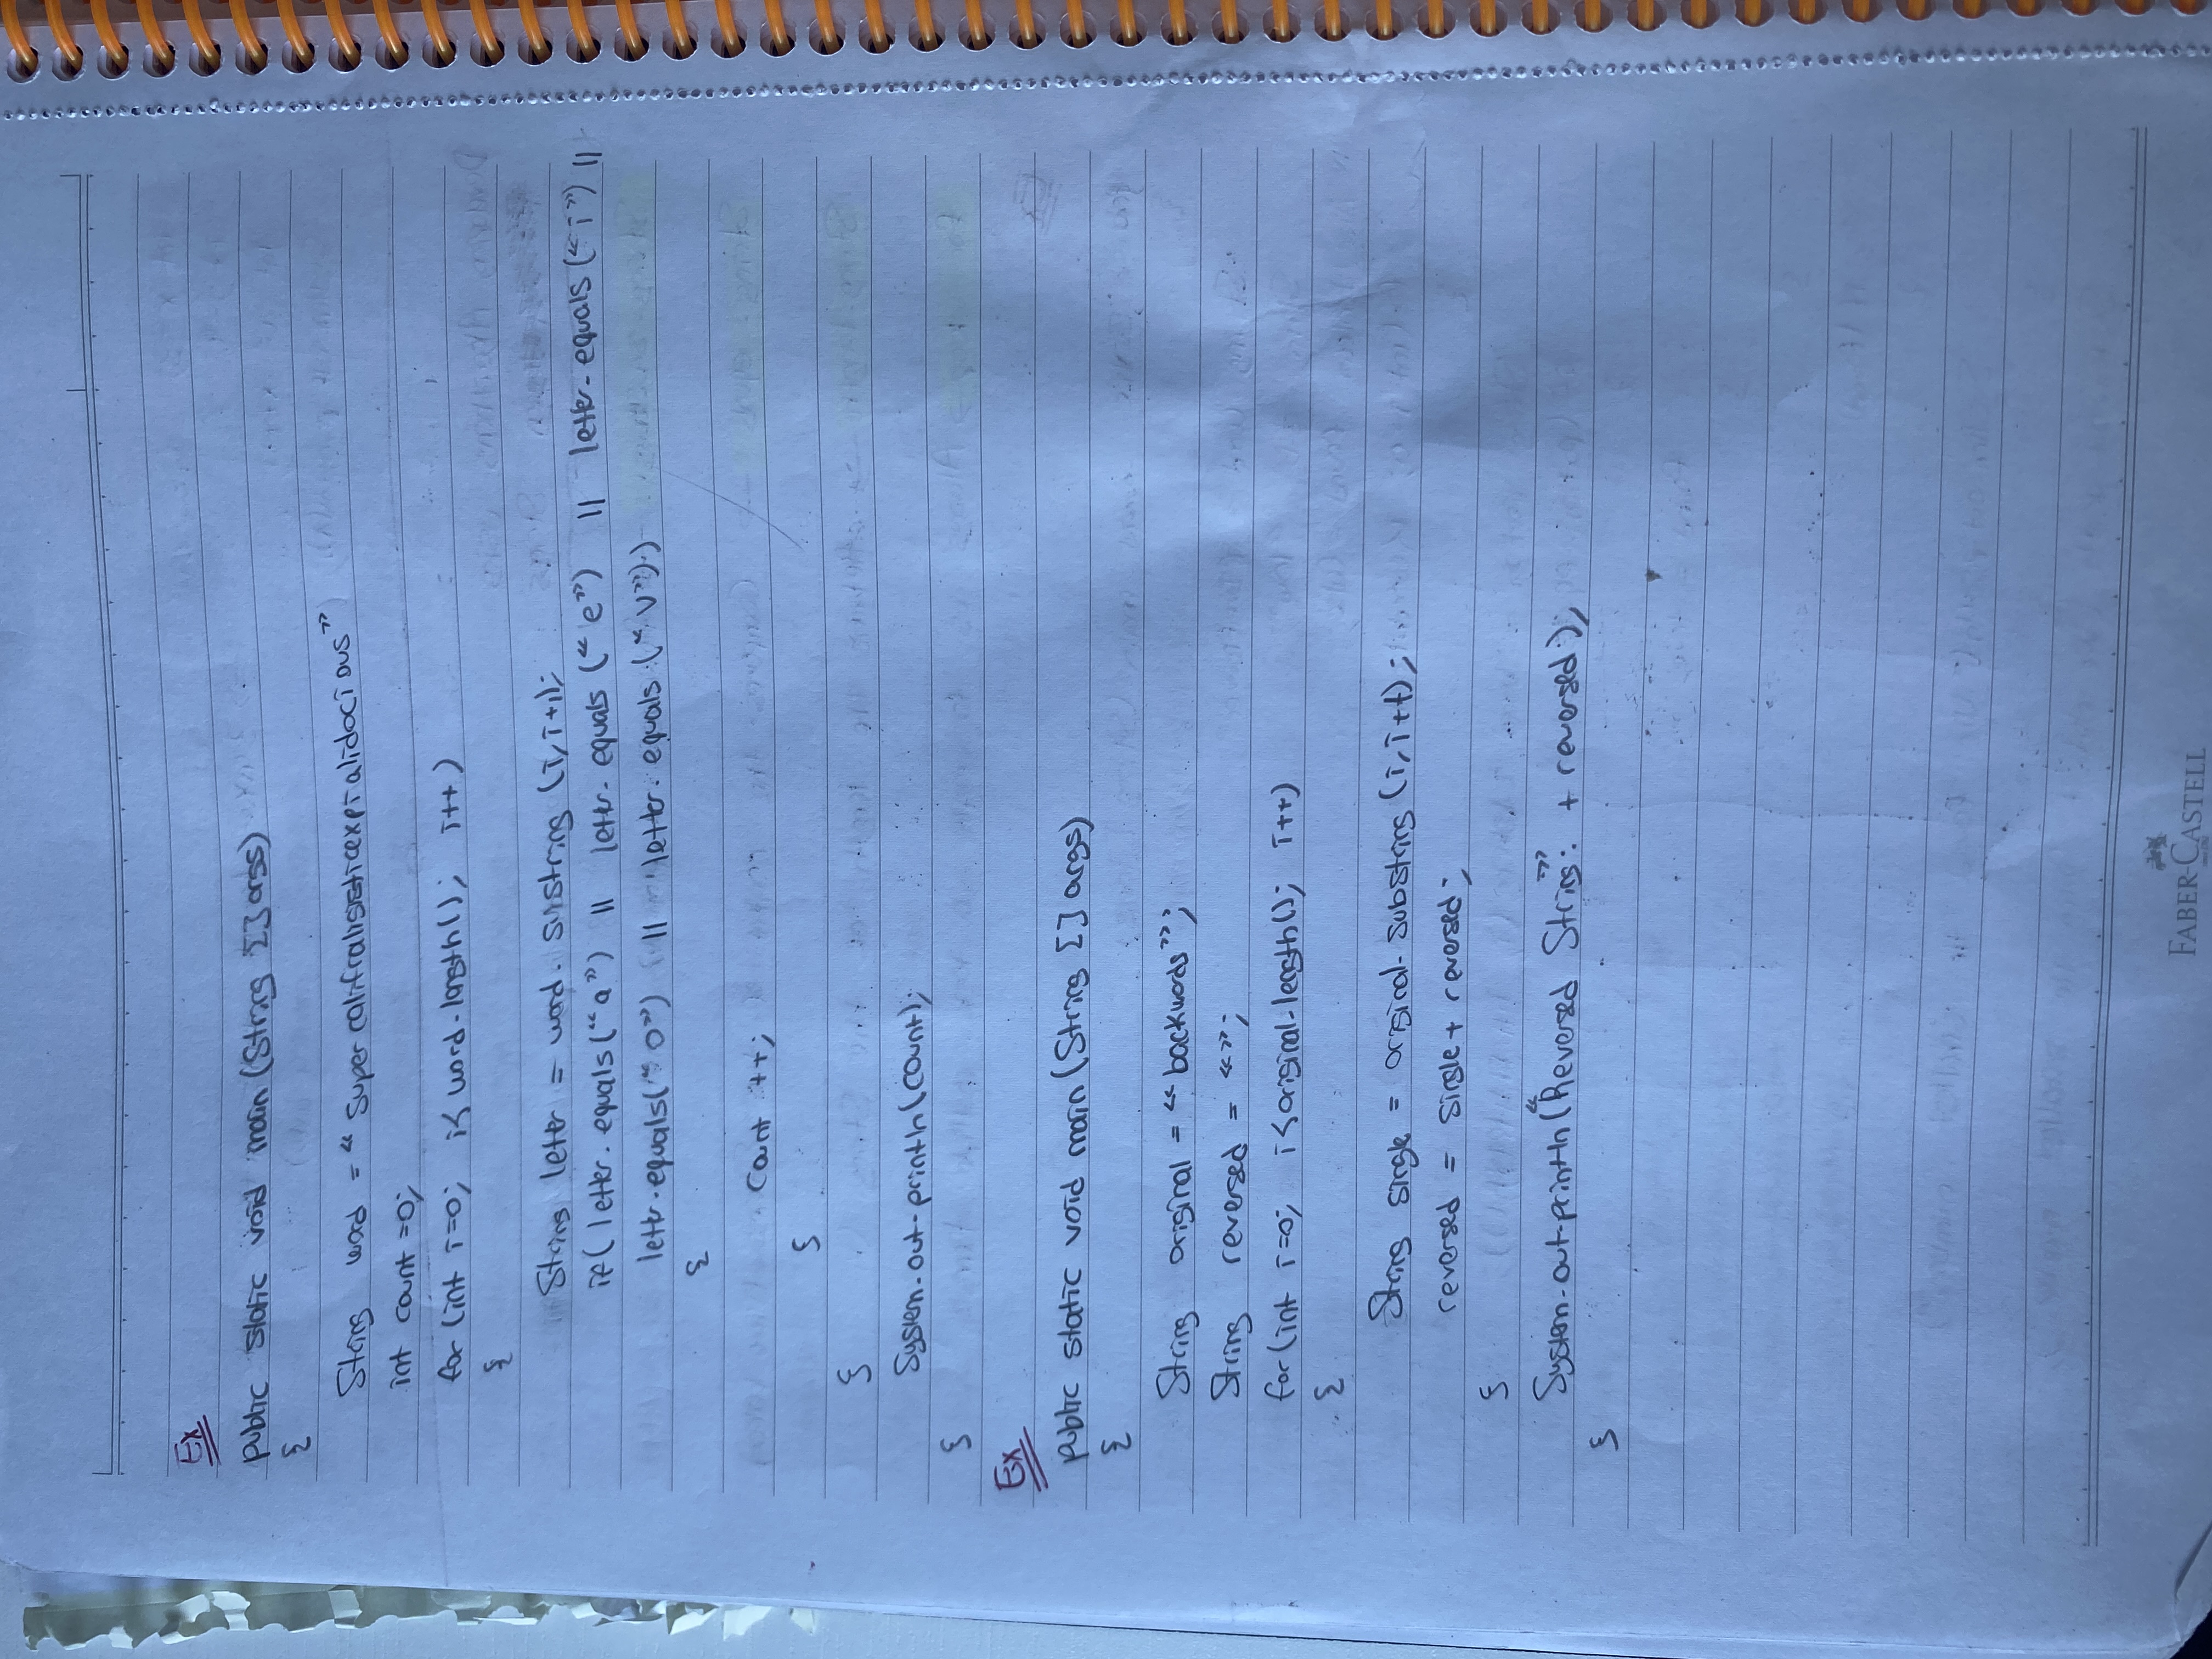 Ex
public static void main (String [] args)
{
String word = “supercalifralisisticexpialidocious”
int count =0;
for (int i=0; i< word.length(); i++)
{
String letter = word. substring (i, i+1);
if( letter. equals(“a”) || letter. equals (“e”) || letter. equals (“i”) ||
letter.equals(“o”) || letter. equals (“u”))
{
count ++;
}
}
System.out.println(count);
}
Ex
public static void main (String [] args)
{
String original = “backwords”;
String reversed = “”;
for(int i=0; i<original.length(); i++)
{
String single = original. substring (i, i++);
reversed = single + reversed;
}
System.out.println(“Reversed String”: + reversed);
}
FABER-CASTELL